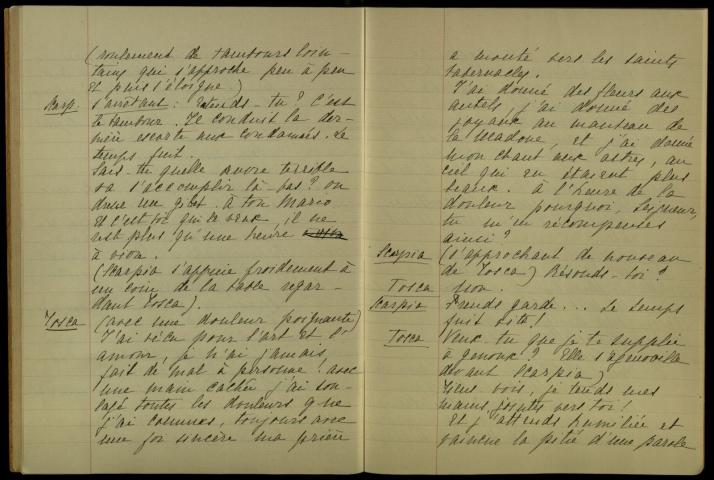 (roulement de tambours loin-
tains qui s'approche peu à peu
et puis s'éloigne.)
Scarp. s'arrêtant : Entends-tu ? C'est
le tambour. Il conduit la der-
nière escorte aux condamnés. Le
temps fuit.
Sais-tu quelle œuvre terrible
va s'accomplir là bas ? on
dresse un gibet. À ton Mario
et c'est toi qui le veux, il ne
reste plus qu'une heure
à vivre.
(Scarpia s'appuie froidement à
un coin de la table regar-
dant Tosca).
Tosca (avec une douleur poignante)
J'ai vécu pour l'art et l'
amour, je n'ai jamais
fait de mal à personne. avec
une main cachée j'ai sou-
lagé toutes les douleurs que
j'ai connues, toujours avec
une foi sincère ma prière
a monté vers les saints
tabernacles.
J'ai donné des fleurs aux
autels, j'ai donné des
joyaux au manteau de
la Madone, et j'ai donné
mon chant aux astres, au
ciel qui en étaient plus
beaux. À l'heure de la
douleur pourquoi, Seigneur,
tu m'en récompenses
ainsi ?
Scarpia (s'approchant de nouveau
de Tosca) Résouds-toi ?
Tosca Non.
Scarpia Prends garde... Le temps
fuit vite !
Tosca Veux-tu que je te supplie
à genoux ? Elle s'agenouille
devant Scarpia)
Tiens vois, je tends mes
mains jointes vers toi !
Et j'attends humiliée et
vaincue la pitié d'une parole